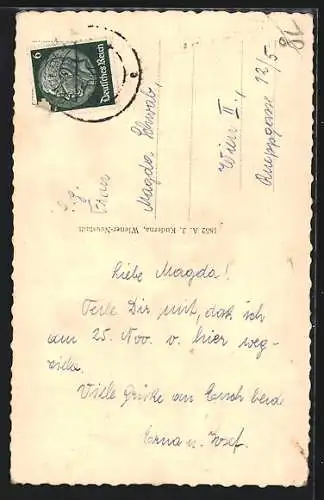 6
Deutsches Reich
Frau
Magda Schwab,
Wien II.,
Rueppgasse 12/5
1852 A. J. Kuderna, Wiener-Neustadt
Liebe Magda!
Teile Dir mit, daß ich
am 25. Nov. v. hier weg-
Viele Grüße an Euch beide
Erna u. Josef.